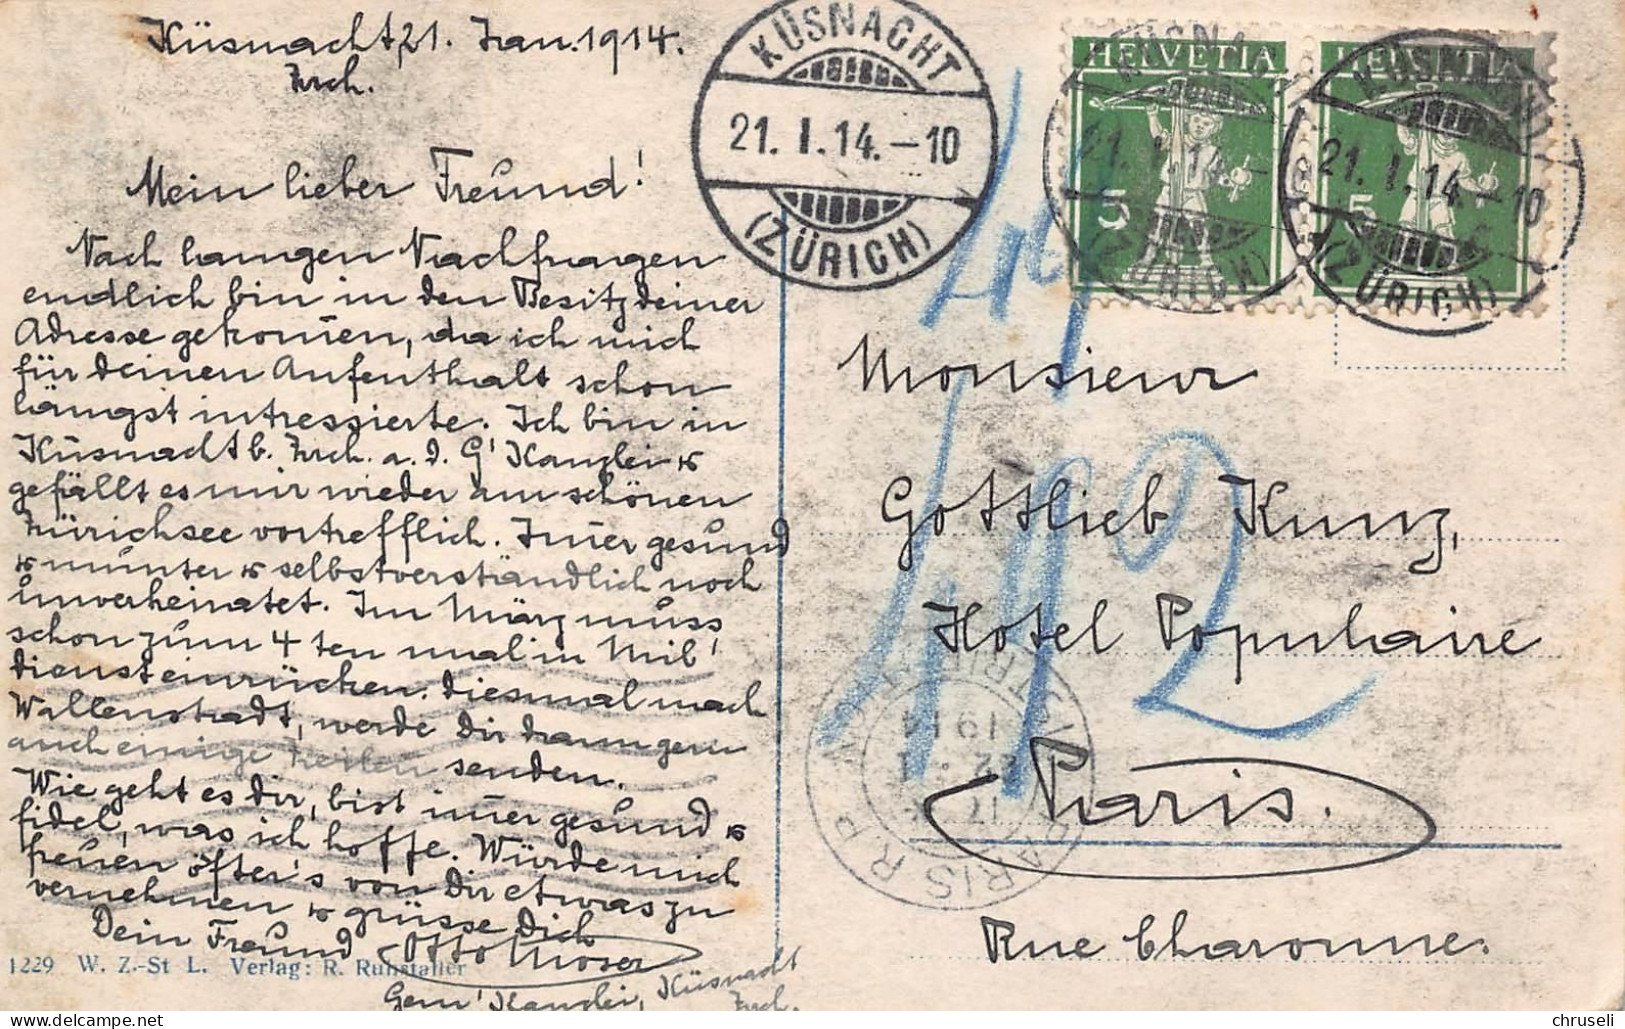 Küsnacht, 21. Jan. 1914.
Zrch.
Mein lieber Freund!
Nach langen Nachfragen
endlich bin in den Besitz deiner
Adresse gekom̄en, da ich mich
für deinen Aufenthalt schon
längst intressierte. Ich bin in
Küsnacht b. Zrch. a. d. G' Kanzlei &
gefällt es mir wieder am schönen
Zürichsee vortrefflich. Im̄er gesund
& munter & selbstverständlich noch
unverheiratet. Im März muss
schon zum 4 ten mal in Mil'
dienst einrücken. Diesmal nach
Wallenstadt, werde Dir dann gern
auch einige Zeilen senden.
Wie geht es Dir, bist im̄er gesund &
fidel, was ich hoffe. Würde mich
freuen öfter's von Dir etwas zu
vernehmen & grüsse Dich
Dein Freund Otto Moser
Gem' Kanzlei, Küsnacht
Zrch.
1229 W. Z.-St L. Verlag: R. Ruhstaller
KÜSNACHT
21. I. 14. – 10
(ZÜRICH)
HELVETIA
5
HELVETIA
5
KÜSNACHT
21. I. 14. –
(ZÜRICH)
KÜSNACHT
21. I. 14. – 10
(ZÜRICH)
Monsieur
Gottlieb Kunz,
Hotel Populaire
Paris.
Rue Charonne.
192
PARIS R.P.
1914
chruseli